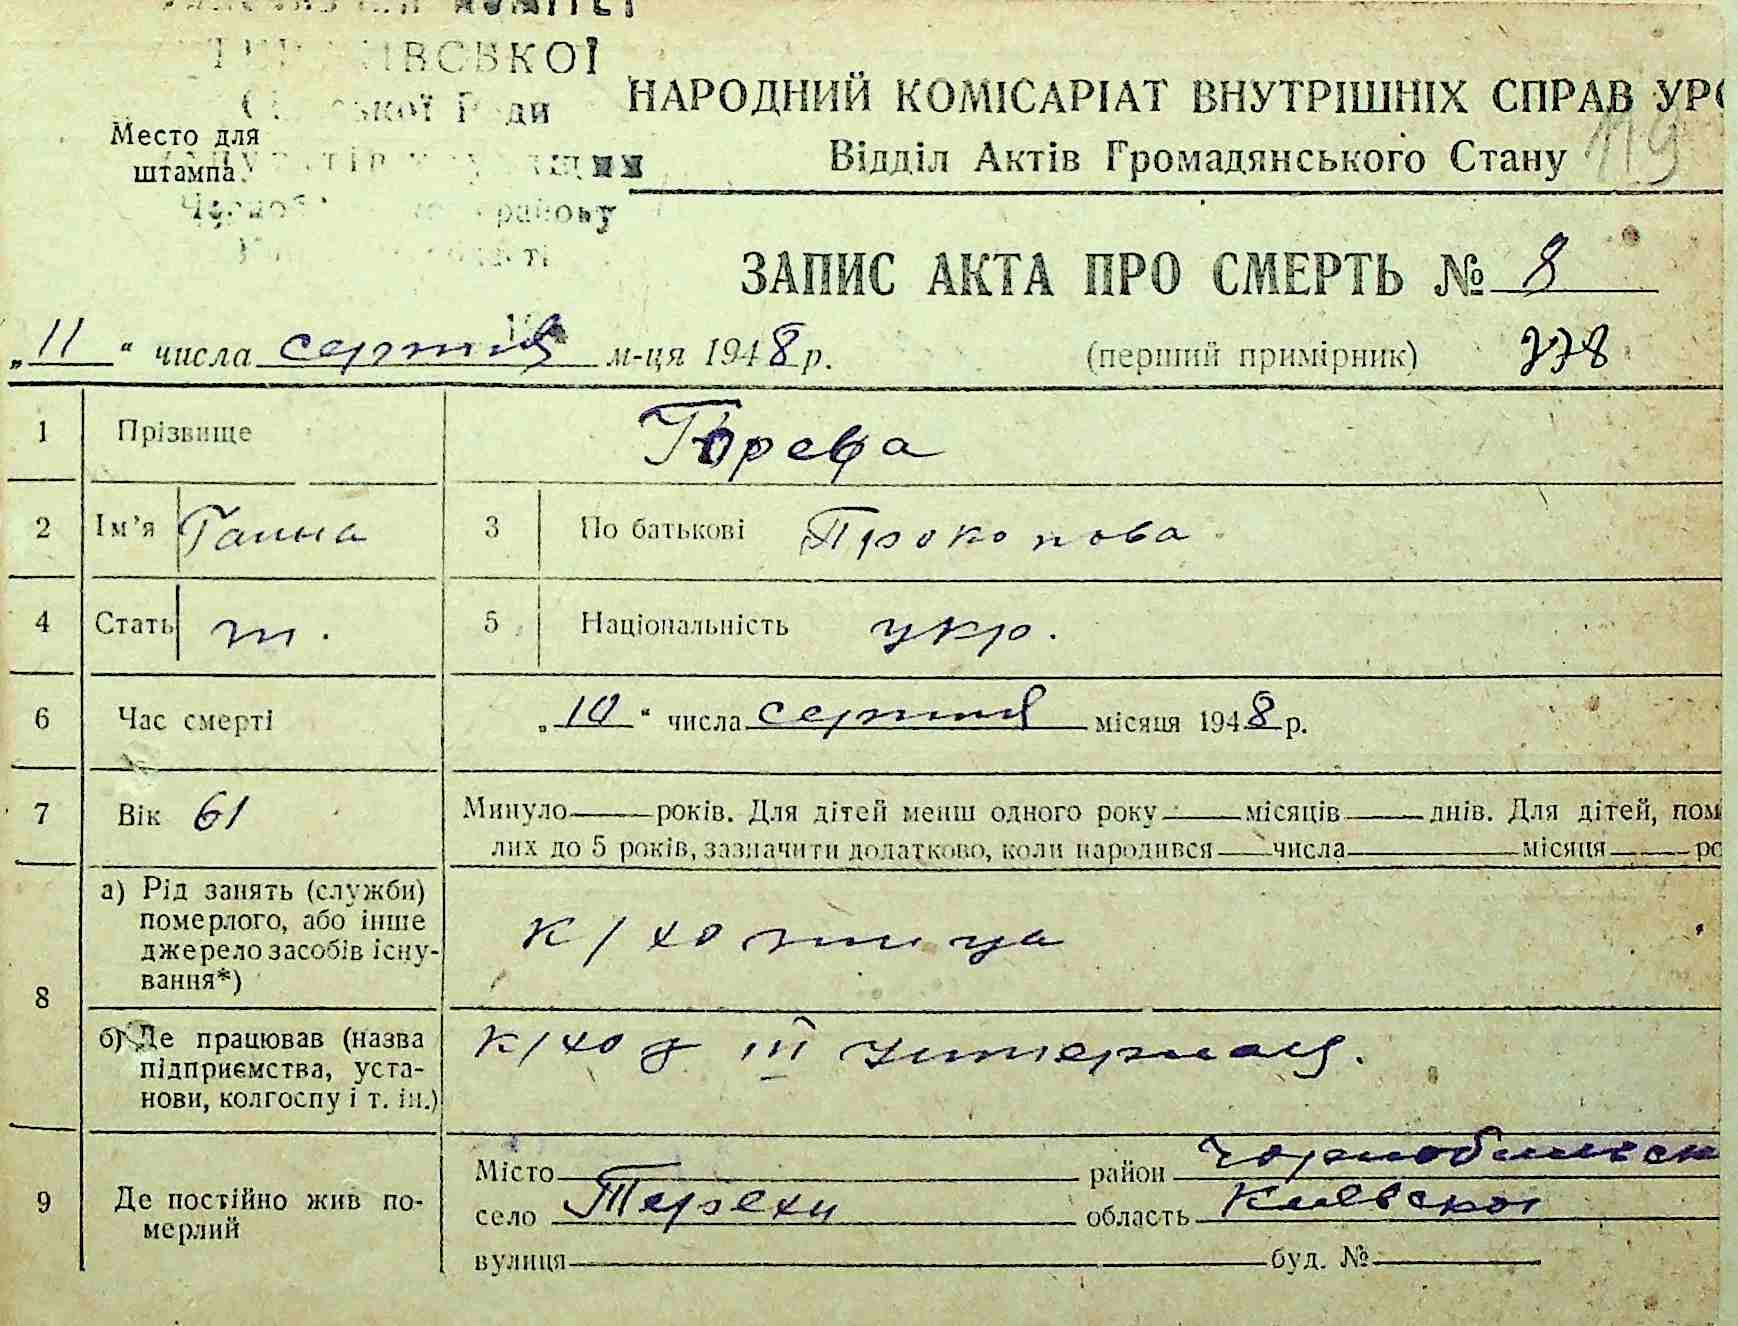 КОМІТЕТ
ІВСЬКОЇ
Ради
НАРОДНИЙ КОМІСАРІАТ ВНУТРІШНІХ СПРАВ УРС
Место для
штампа
Відділ Актів Громадянського Стану
119
району
ЗАПИС АКТА ПРО СМЕРТЬ № 8
„11“ числа серпня м-ця 1948 р. (перший примірник) 778
1 Прізвище
2 Ім'я Ганна 3 По батькові Прокопова
4 Стать 5 Національність укр.
6 Час смерті „10“ числа серпня місяця 1948 р.
7 Вік 61 Минуло років. Для дітей менш одного року місяців днів. Для дітей, пом
лих до 5 років, зазначити додатково, коли народився числа місяця ро
8 а) Рід занять (служби)
померлого, або інше
джерело засобів існу-
вання*)
к/хозница
б) Де працював (назва
підприємства, уста-
нови, колгоспу і т. ін.)
к/хоз III Интернац.
9 Де постійно жив по-
мерлий
Місто район Чорнобильск
село Терехи область Киевской
вулиця буд. №